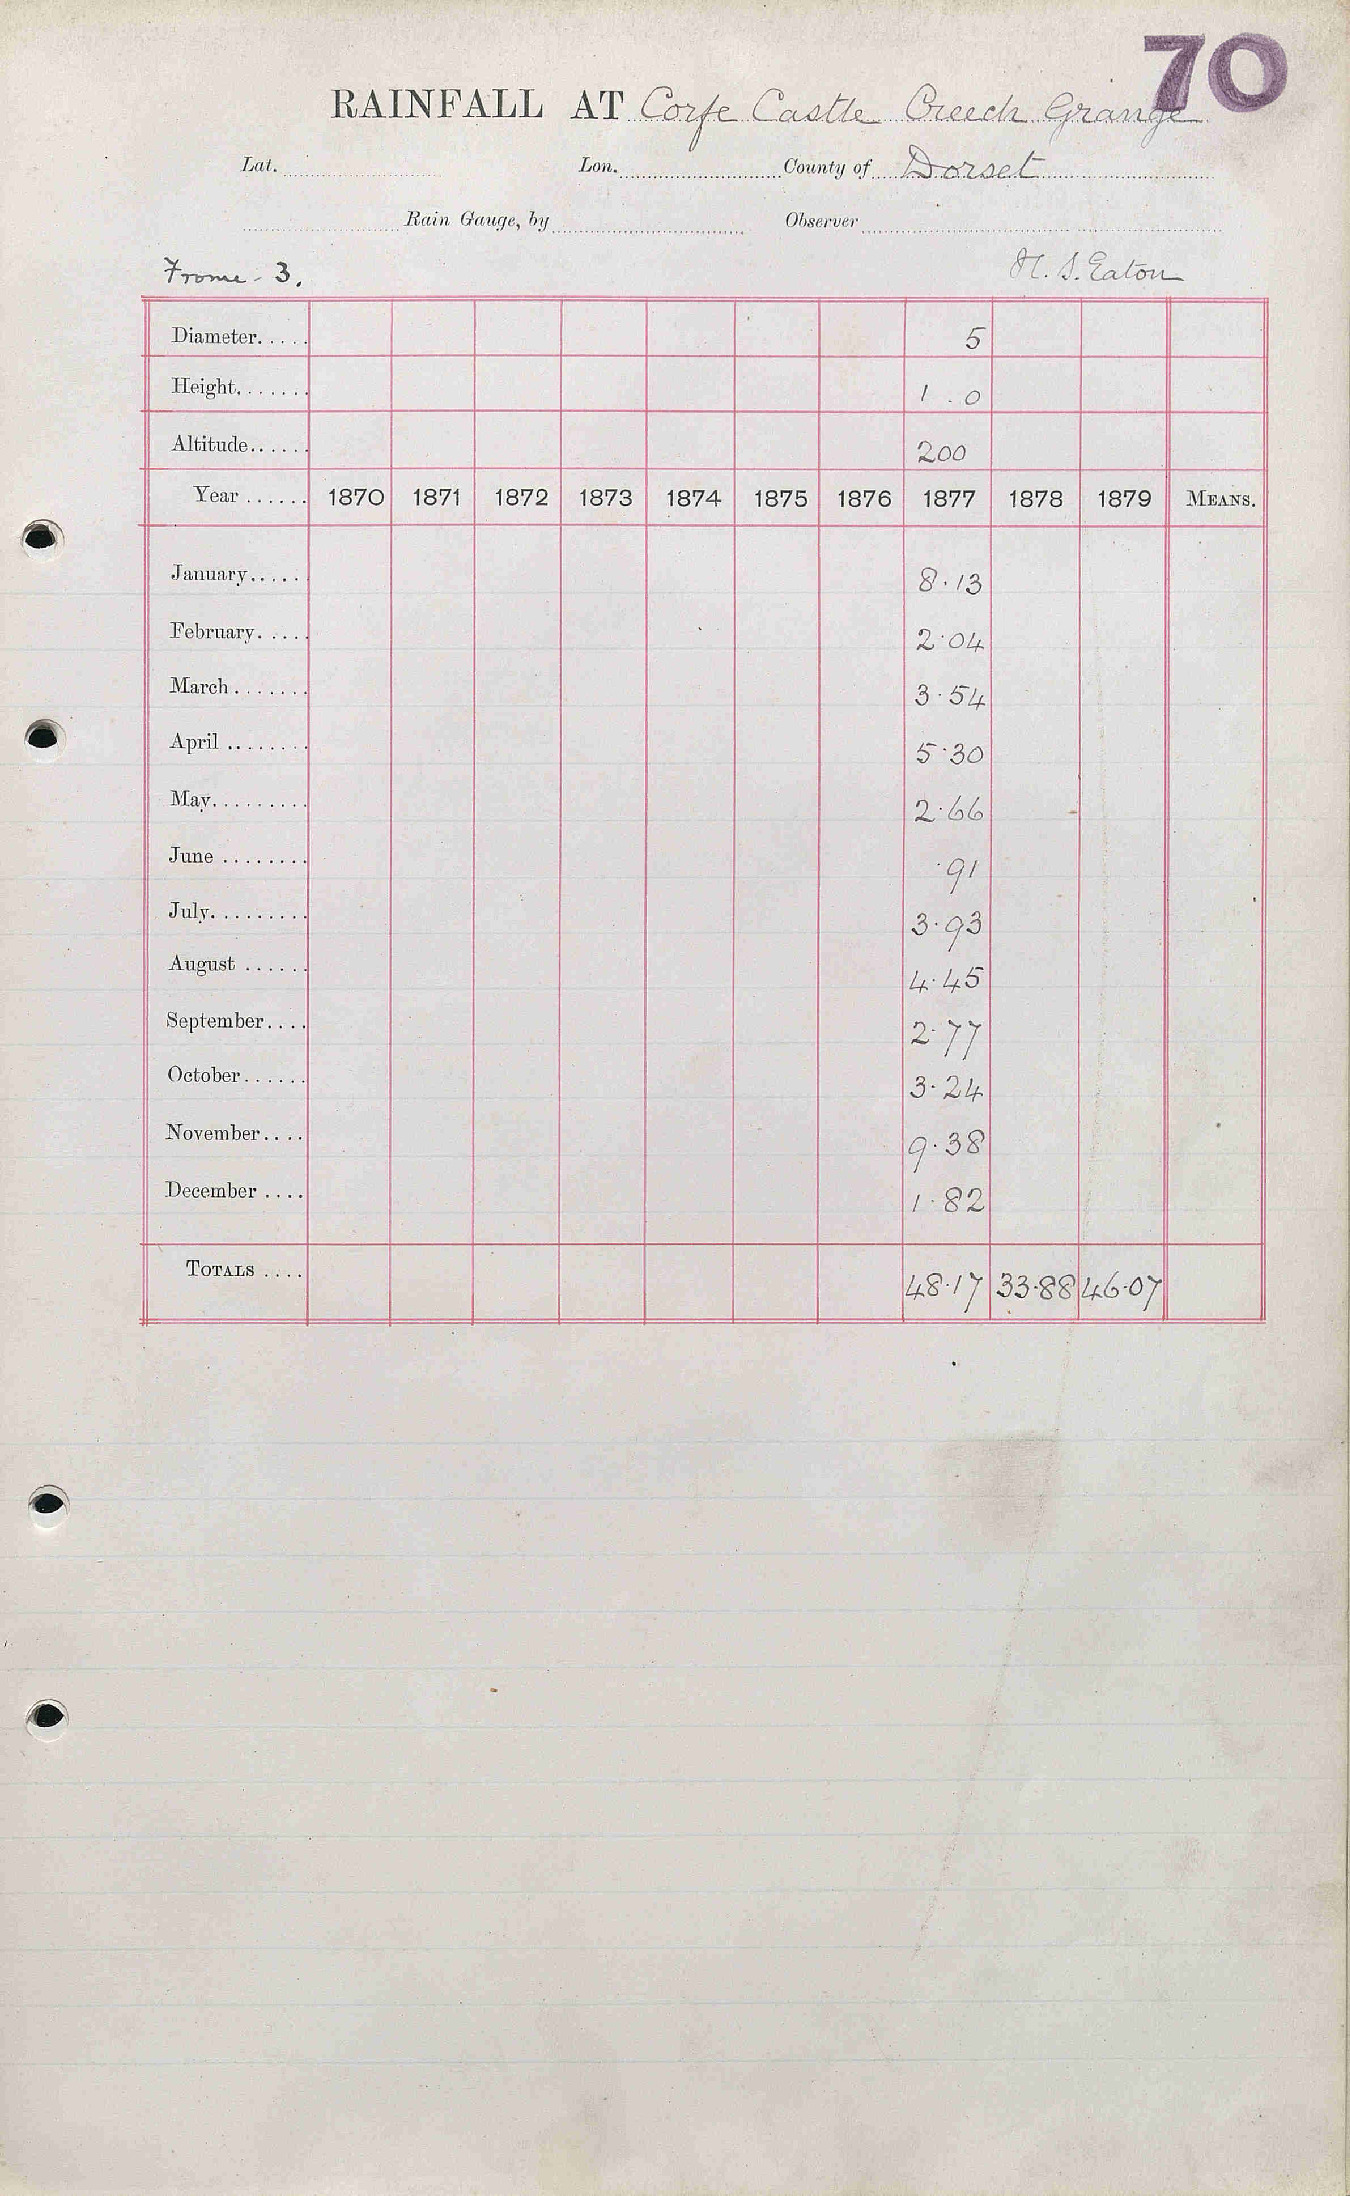 70
RAINFALL AT Corfe Castle Creech Grange
Lat. Lon. County of Dorset
Rain Gauge, by Observer
Frome - 3. H. S. Eaton
Diameter..... 5
Height....... 1 . 0
Altitude...... 200
Year ...... 1870 1871 1872 1873 1874 1875 1876 1877 1878 1879 MEANS.
January..... 8.13
February..... 2.04
March ....... 3.54
April ........ 5.30
May......... 2.66
June ........ .91
July......... 3.93
August ...... 4.45
September.... 2.77
October...... 3.24
November.... 9.38
December .... 1.82
TOTALS .... 48.17 33.88 46.07